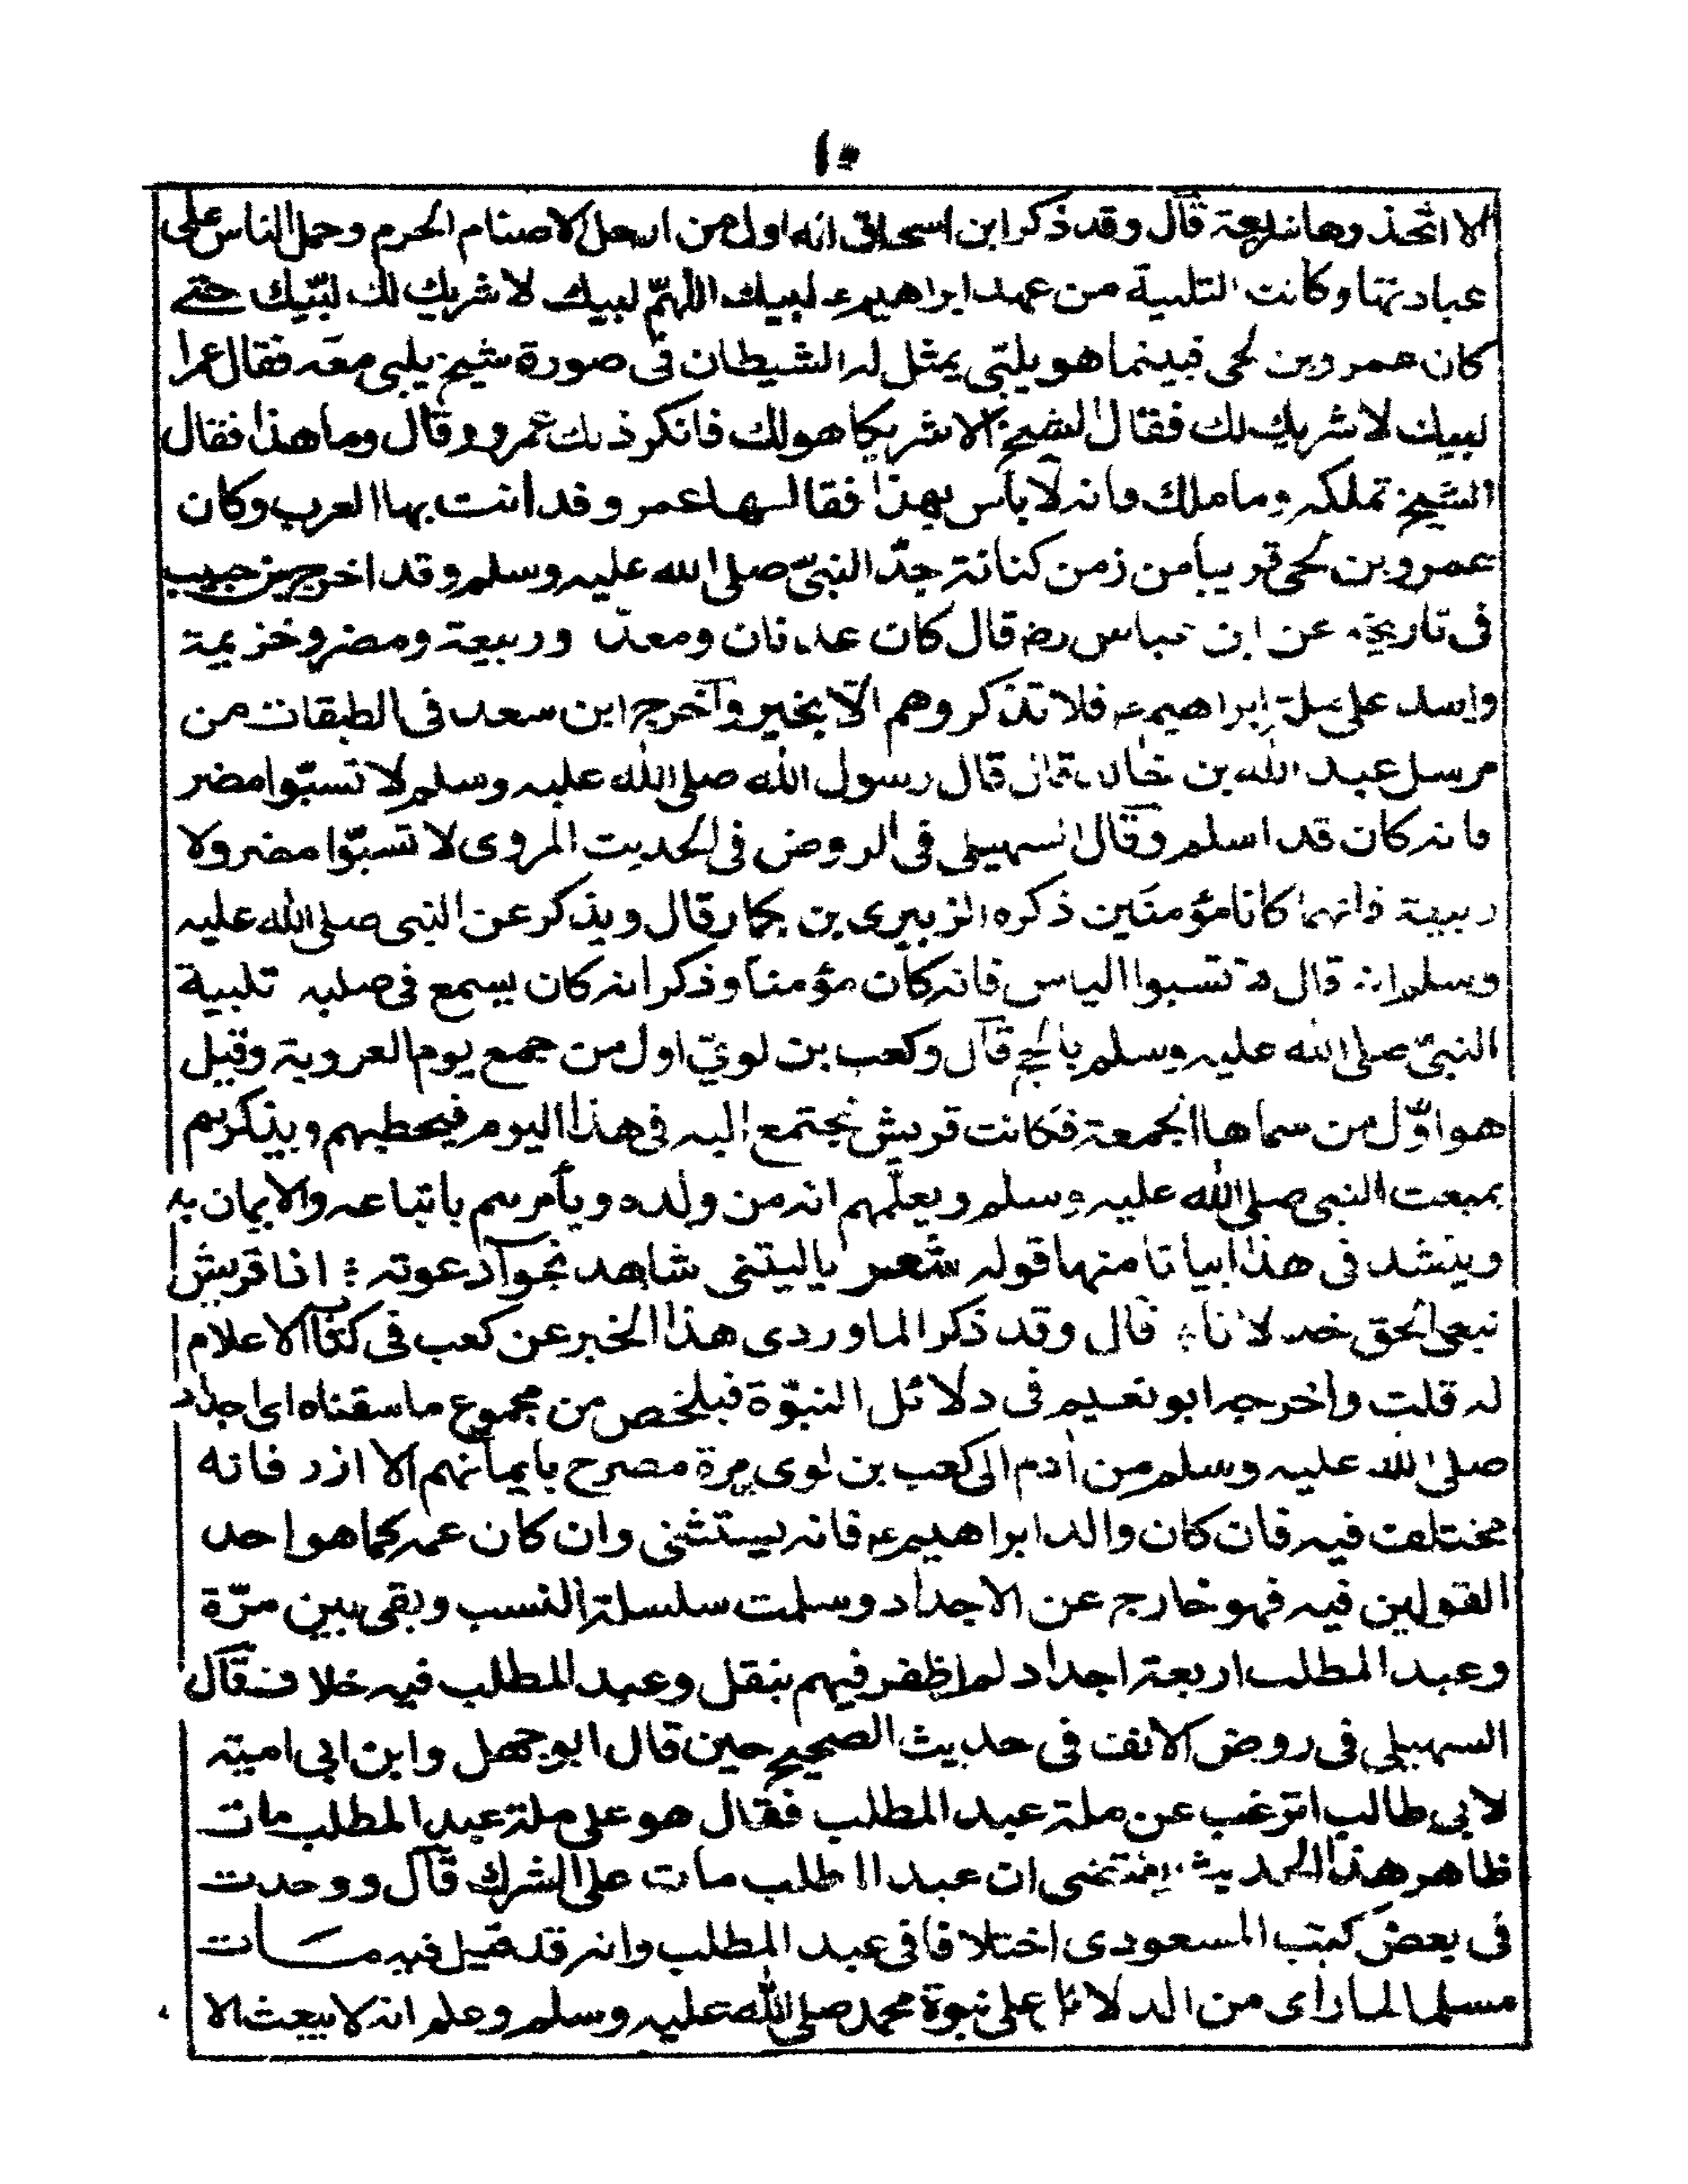 ١٥
الا اتخذوها شريعة قال وقد ذكر ابن اسحاق انه اول من ادخل الاصنام الحرم وحمل الناس على
عبادتها وكانت التلبية من عهد ابراهيم ع لبيك اللهمّ لبيك لا شريك لك لبّيك حتے
كان عمرو بن لحى فبينما هو يلبّى يمثل له الشيطان فى صورة شيخ يلبى معه فقال عمرو
لبيك لا شريك لك فقال الشيخ الا شريكا هو لك فانكر ذلك عمرو وقال وما هذا فقال
الشيخ تملكه وما ملك فانه لا باس بهذا فقالها عمرو فدانت بها العرب وكان
عمرو بن لحى قريبا من زمن كنانة جدّ النبىّ صلى الله عليه وسلم وقد اخرج بن حبيب
فى تاريخه عن ابن عباس رضـ قال كان عدنان ومعدّ وربيعة ومضر وخزيمة
واسد على ملة ابراهيم ع فلا تذكروهم الّا بخير وآخرج ابن سعد فى الطبقات من
مرسل عبد الله بن خالد قال قال رسول الله صلى الله عليه وسلم لا تسبّوا مضر
فانه كان قد اسلم وقال السهيلى فى الروض فى الحديث المروى لا تسبّوا مضر ولا
ربيعة فانهما كانا مؤمنَين ذكره الزبيرى بن بكار قال ويذكر عن النبى صلى الله عليه
وسلم انه قال لا تسبوا الياس فانه كان مؤمناً وذكر انه كان يسمع فى صلبه تلبية
النبىّ صلى الله عليه وسلم بالحج قال وكعب بن لوىّ اول من جمع يوم العروبة وقيل
هو اوّل من سماها الجمعة فكانت قريش تجتمع اليه فى هذا اليوم فيخطبهم ويذكرهم
بمبعث النبى صلى الله عليه وسلم ويعلّمهم انه من ولده ويأمرهم باتباعه والايمان به
وينشد فى هذا ابياتا منها قوله شعر ياليتنى شاهد نجوآء دعوته ؛ اذا قريش
تبغى الحق خذلانا ؛ قال وقد ذكر الماوردى هذا الخبر عن كعب فى كتاب الاعلام
له قلت وأخرجه ابو نعيم فى دلائل النبوّة فيلخص من مجموع ما سقناه اى اجداد
صلى الله عليه وسلم من اٰدم الى كعب بن لوى مرة مصرح بايمانهم الا ازر فانه
مختلف فيه فان كان والد ابراهيم ع فانه يستثنى وان كان عمه كما هو احد
القولين فيه فهو خارج عن الاجداد وسلمت سلسلة النسب وبقى بين مرّة
وعبد المطلب اربعة اجداد لم اظفر فيهم بنقل وعبد المطلب فيه خلاف قال
السهيلى فى روض الانف فى حديث الصحيح حين قال ابو جهل وابن ابى اميته
لابى طالب اترغب عن ملة عبد المطلب فقال هو على ملة عبد المطلب مات
ظاهر هذا الحديث يقتضى ان عبد المطلب مات على الشرك قال ووجدت
فى بعض كتب المسعودى اختلافا فى عبد المطلب وانه قد قيل فيه مــات
مسلما لما راى من الدلائل على نبوة محمد صلى الله عليه وسلم وعلم انه لا يبعث الا